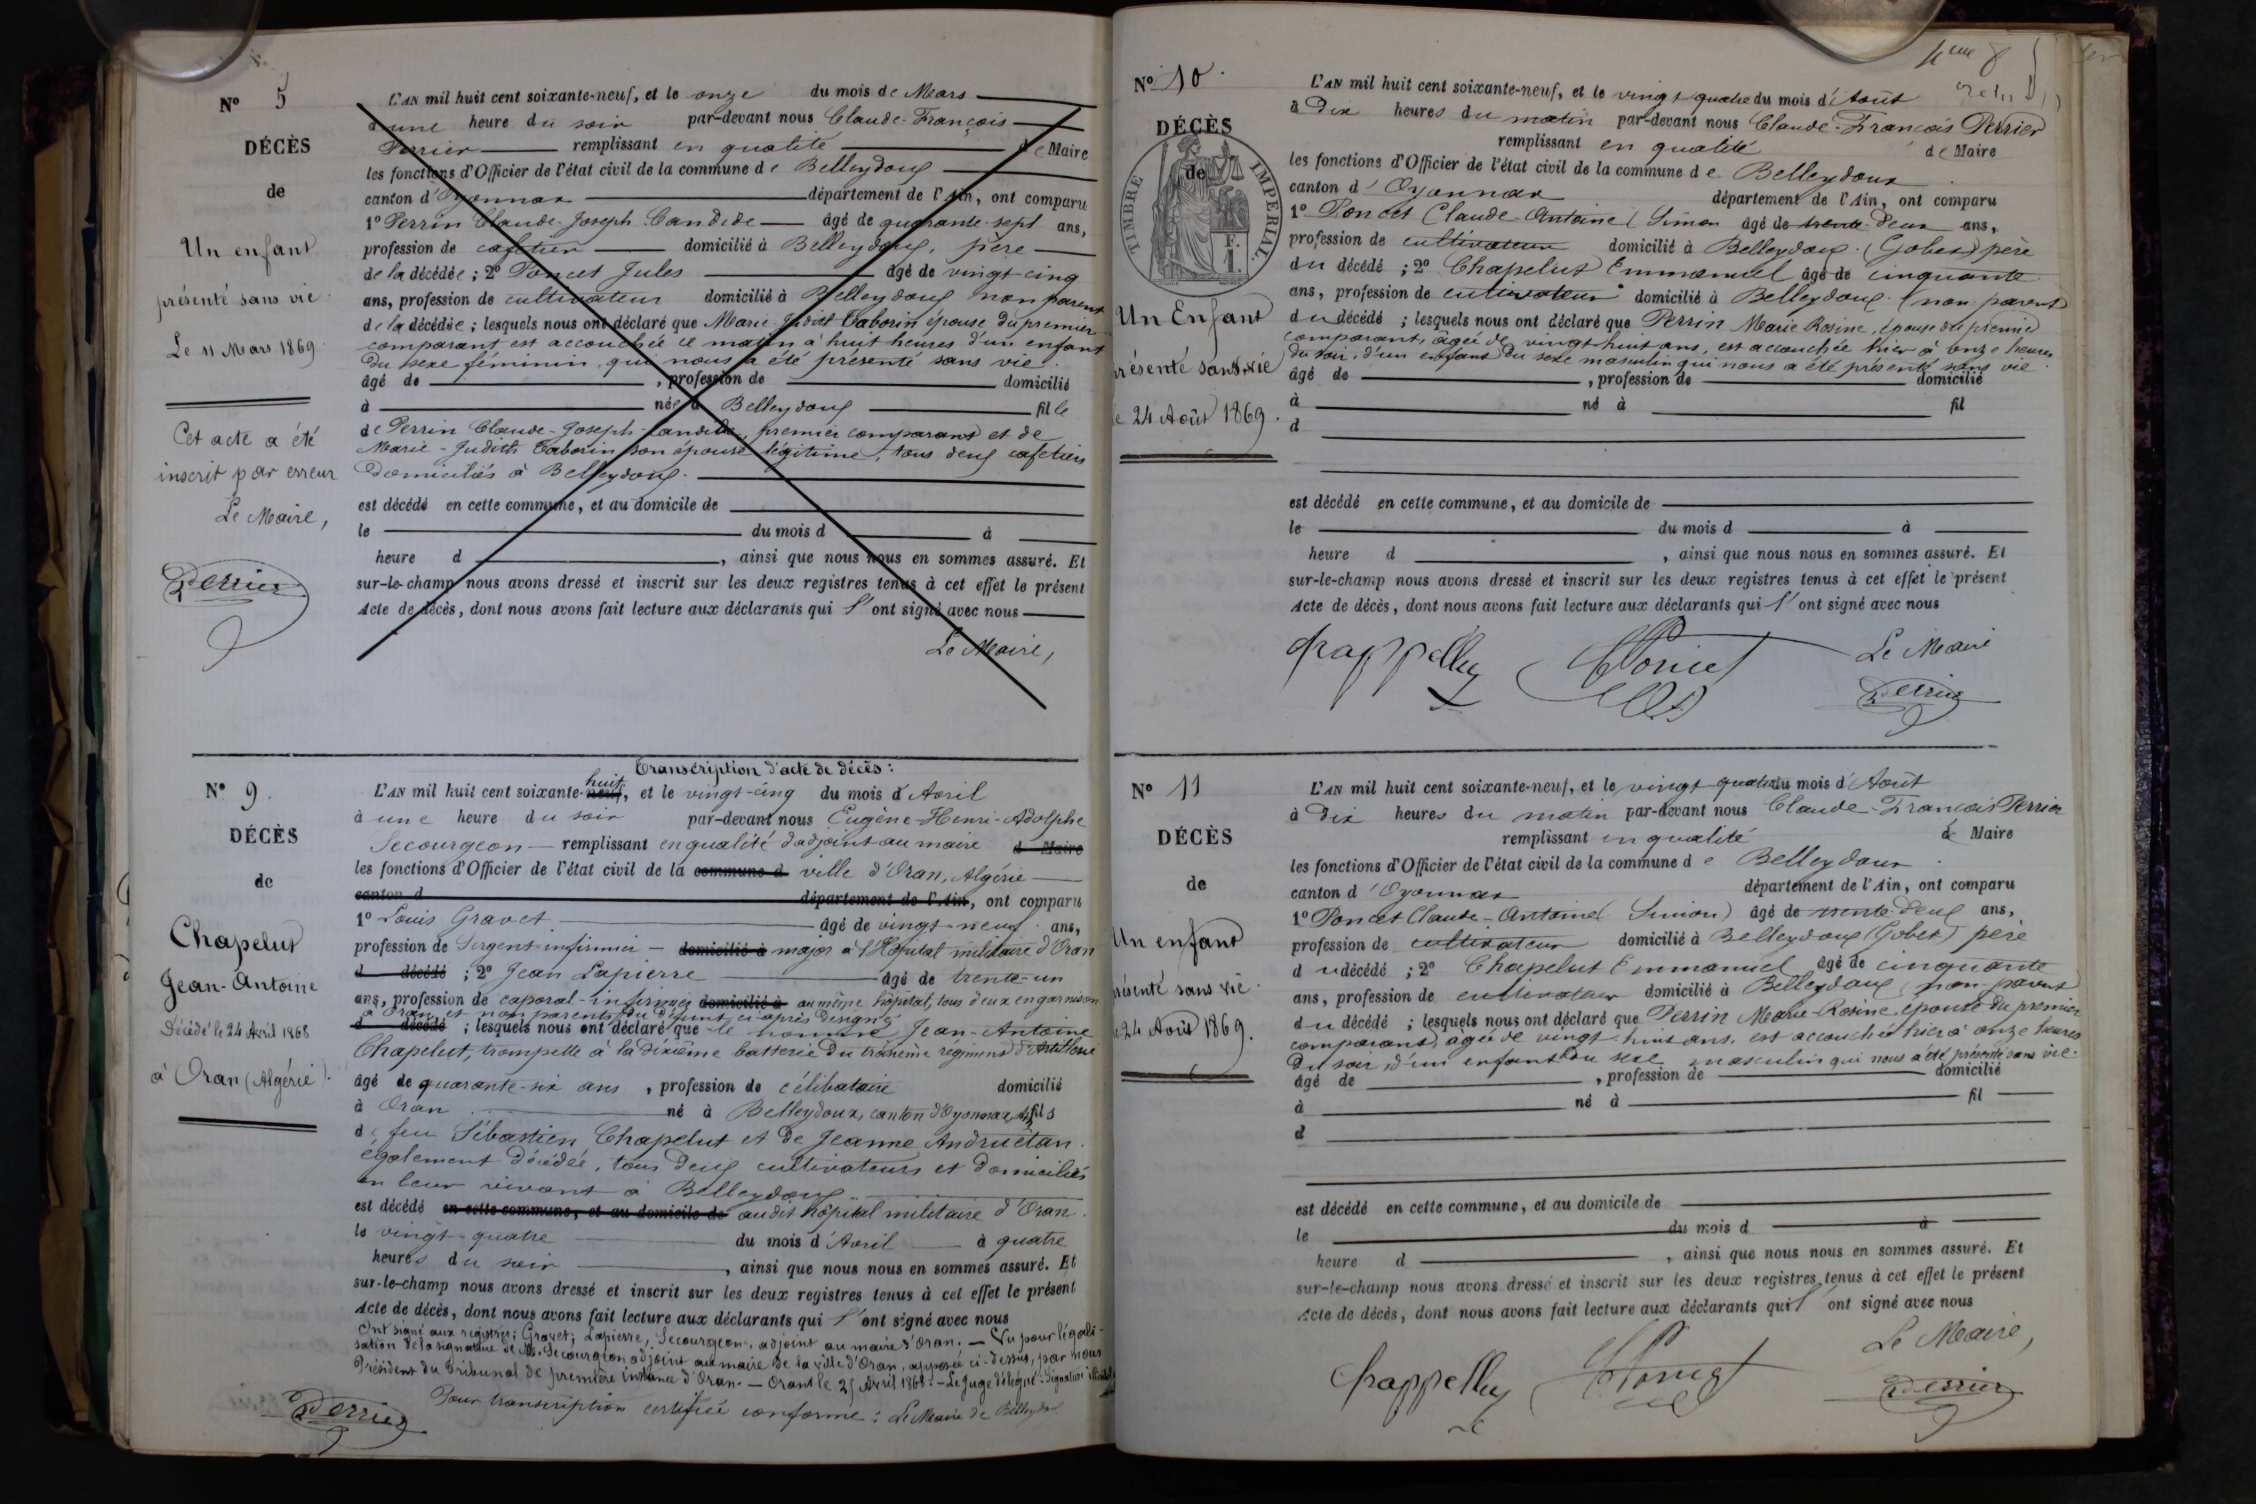 Nº 5
DÉCÈS
de
Un enfant
présenté sans vie
Le 11 Mars 1869.
Cet acte a été
inscrit par erreur
Le Maire,
Perrier
L'AN mil huit cent soixante-neuf, et le onze du mois de Mars
à une heure du soir par-devant nous Claude-François
Perrier remplissant en qualité de Maire
les fonctions d'Officier de l'état civil de la commune de Belleydoux
canton d'Oyonnax département de l'Ain, ont comparu
1º Perrin Claude-Joseph-Candide âgé de quarante-sept ans,
profession de cafetier domicilié à Belleydoux, père
de la décédée ; 2º Poncet Jules âgé de vingt-cinq
ans, profession de cultivateur domicilié à Belleydoux non parent
de la décédée ; lesquels nous ont déclaré que Marie-Judith Taborin épouse du premier
comparant est accouchée ce matin à huit heures d'un enfant
du sexe féminin, qui nous a été présenté sans vie.
âgé de , profession de domicilié
à née à Belleydoux fille
de Perrin Claude-Joseph-Candide, premier comparant et de
Marie-Judith Taborin son épouse légitime, tous deux cafetiers
domiciliés à Belleydoux.
est décédé en cette commune, et au domicile de
le du mois d à
heure d , ainsi que nous nous en sommes assuré. Et
sur-le-champ nous avons dressé et inscrit sur les deux registres tenus à cet effet le présent
Acte de décès, dont nous avons fait lecture aux déclarants qui l'ont signé avec nous
Le Maire,
Transcription d'acte de décès :
Nº 9.
DÉCÈS
de
Chapelut
Jean-Antoine
Décédé le 24 Avril 1868
à Oran (Algérie).
huit
L'AN mil huit cent soixante-neuf, et le vingt-cinq du mois d'Avril
à une heure du soir par-devant nous Eugène-Henri-Adolphe
Secourgeon remplissant en qualité d'adjoint au maire d Maire
les fonctions d'Officier de l'état civil de la commune d ville d'Oran, Algérie
canton d département de l'Ain, ont comparu
1º Louis Gravet âgé de vingt-neuf ans,
profession de Sergent-infirmier domicilié à major à l'Hôpital militaire d'Oran
d décédé ; 2º Jean Lapierre âgé de trente-un
ans, profession de caporal-infirmier domicilié à au même hôpital, tous deux en garnison
à Oran et non parents du défunt ci-après désigné
d décédé ; lesquels nous ont déclaré que le nommé Jean-Antoine
Chapelut, trompette à la dixième batterie du troisième régiment d'Artillerie
âgé de quarante-six ans, profession de célibataire domicilié
à Oran né à Belleydoux, canton d'Oyonnax, fils
de feu Sébastien Chapelut et de Jeanne Andruétan
également décédée, tous deux cultivateurs et domiciliés
en leur vivant à Belleydoux
est décédé en cette commune, et au domicile de audit hôpital militaire d'Oran.
le vingt-quatre du mois d'Avril à quatre
heures du soir , ainsi que nous nous en sommes assuré. Et
sur-le-champ nous avons dressé et inscrit sur les deux registres tenus à cet effet le présent
Acte de décès, dont nous avons fait lecture aux déclarants qui l'ont signé avec nous
Ont signé aux registres : Gravet, Lapierre, Secourgeon, adjoint au maire d'Oran. — Vu pour légali-
sation de la signature de M. Secourgeon adjoint au maire de la ville d'Oran, apposée ci-dessus, par nous
Président du Tribunal de première instance d'Oran. — Oran le 25 Avril 1868. — Le Juge délégué. Signature
Pour transcription certifiée conforme : Le Maire de Belleydoux
Perrier
Nº 10.
DÉCÈS
de
TIMBRE IMPERIAL.
Un Enfant
présenté sans vie
le 24 Août 1869.
L'AN mil huit cent soixante-neuf, et le vingt quatre du mois d'Août
à Dix heures du matin par-devant nous Claude-François Perrier
remplissant en qualité de Maire
les fonctions d'Officier de l'état civil de la commune de Belleydoux
canton d'Oyonnax département de l'Ain, ont comparu
1º Poncet Claude-Antoine (Simon âgé de trente-deux ans,
profession de cultivateur domicilié à Belleydoux (Gobet) père
du décédé ; 2º Chapelut Emmanuel âgé de cinquante
ans, profession de cultivateur domicilié à Belleydoux (non parent
du décédé ; lesquels nous ont déclaré que Perrin Marie Rosine, épouse du premier
comparant, âgée de vingt huit ans, est accouchée hier à onze heures
du soir, d'un enfant du sexe masculin qui nous a été présenté sans vie.
âgé de , profession de domicilié
à né à fil
d
est décédé en cette commune, et au domicile de
le du mois d à
heure d , ainsi que nous nous en sommes assuré. Et
sur-le-champ nous avons dressé et inscrit sur les deux registres tenus à cet effet le présent
Acte de décès, dont nous avons fait lecture aux déclarants qui l'ont signé avec nous
Chappelluz Poncet Le Maire
Perrier
Nº 11
DÉCÈS
de
Un enfant
présenté sans vie.
le 24 Août 1869.
L'AN mil huit cent soixante-neuf, et le vingt quatre du mois d'Août
à Dix heures du matin par-devant nous Claude-François Perrier
remplissant en qualité de Maire
les fonctions d'Officier de l'état civil de la commune de Belleydoux
canton d'Oyonnax département de l'Ain, ont comparu
1º Poncet Claude-Antoine (Simon) âgé de trente-deux ans,
profession de cultivateur domicilié à Belleydoux (Gobet) père
du décédé ; 2º Chapelut Emmanuel âgé de cinquante
ans, profession de cultivateur domicilié à Belleydoux (non parent
du décédé ; lesquels nous ont déclaré que Perrin Marie-Rosine, épouse du premier
comparant, âgée de vingt-huit ans, est accouchée hier à onze heures
du soir, d'un enfant du sexe masculin qui nous a été présenté sans vie.
âgé de , profession de domicilié
à né à fil
d
est décédé en cette commune, et au domicile de
le du mois d à
heure d , ainsi que nous nous en sommes assuré. Et
sur-le-champ nous avons dressé et inscrit sur les deux registres tenus à cet effet le présent
Acte de décès, dont nous avons fait lecture aux déclarants qui l'ont signé avec nous
Le Maire,
Chappelluz Poncet Perrier